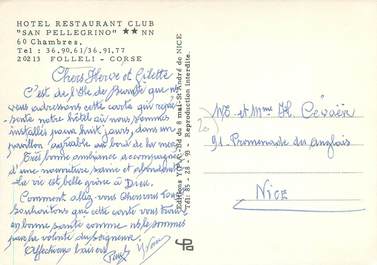 HOTEL RESTAURANT CLUB
"SAN PELLEGRINO" ★★NN
60 Chambres.
Tel : 36.90.61/36.91.77
20213 FOLLELI - CORSE
Chers Herve et Gilette
C'est de l'Ile de Beauté que ns
vous adressons cette carte qui repré-
sente notre hôtel où nous sommes
installés pour huit jours, dans un
pavillon agréable au bord de la mer.
Très bonne ambiance accompagnée
d'une nourriture saine et abondante
la vie est belle grâce à Dieu.
Comment allez-vous Chers nous
souhaitons que cette carte vous trouve
en bonne santé comme ns le sommes
par la volonté du Seigneur.
Affectueux baisers
Yvon
Editions YPA - Bd du 8 mai - St André de NICE
Tél : 85-28-93 - Reproduction interdite.
Mr et Mme H.
91 Promenade des Anglais
NICE